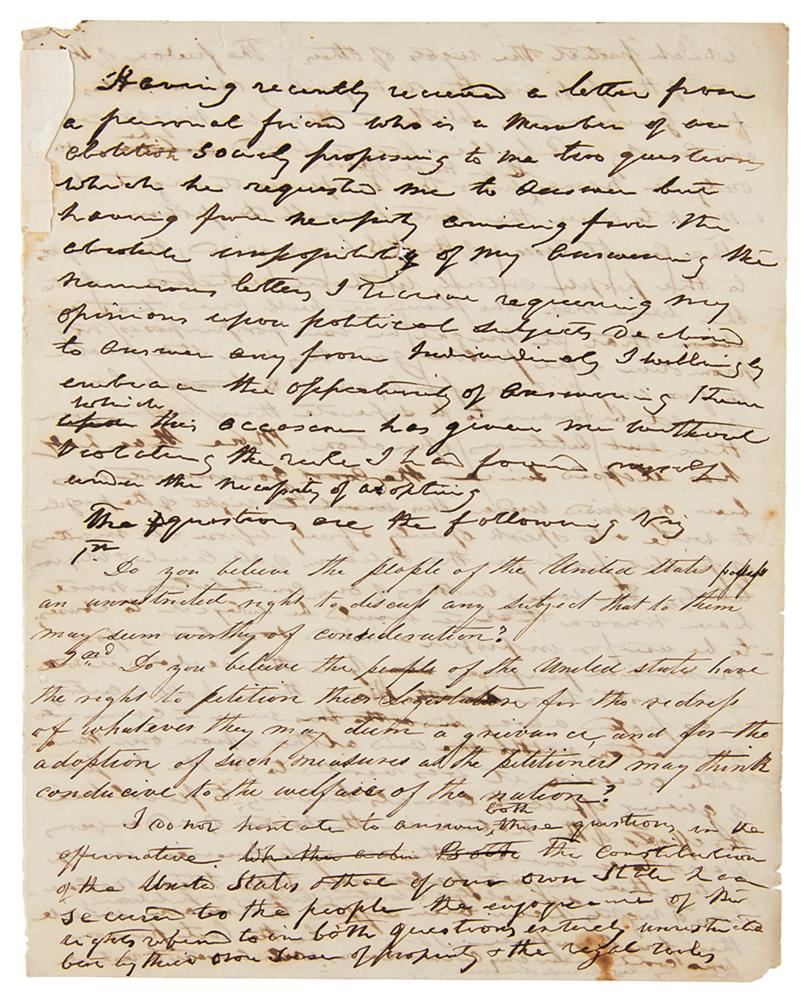 Having recently received a letter from
a personal friend who is a Member of an
abolition Society proposing to me two questions
which he requested me to answer but
having from necessity arrising from the
absolute impossibility of my answering the
numerous letters I receive requiring my
opinions upon political subjects declined
to answer any from Individuals I willingly
embrace the opportunity of answering them
which
upon this occasion has given me without
violating the rule I had found myself
under the necessity of adopting
The questions are the following Viz
1st
Do you believe the people of the United States possess
an unrestricted right to discuss any subject that to them
may seem worthy of consideration?
2nd Do you believe the people of the United States have
the right to petition their Legislature for the redress
of whatever they may deem a grievance, and for the
adoption of such measures as the petitioners may think
conducive to the welfare of the nation?
both
I do not hesitate to answer, these questions in the
affirmative. Whether Both the Constitution
of the United States & that of our own State has
secured to the people the enjoyment of the
rights referred to in both questions entirely unrestricted
but by their own sense of propriety & the legal